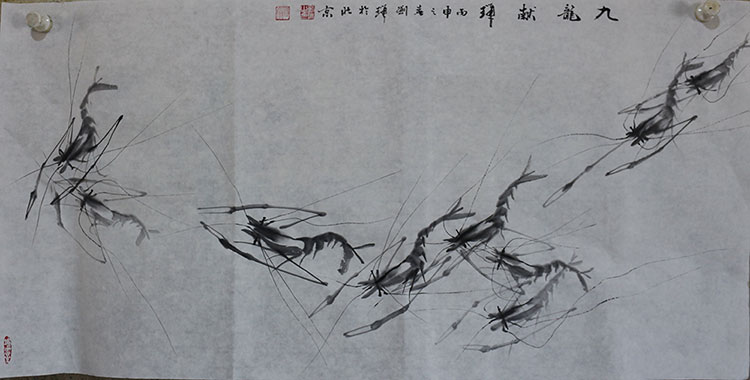 九龍献瑞 丙申之春劉瑞於北京